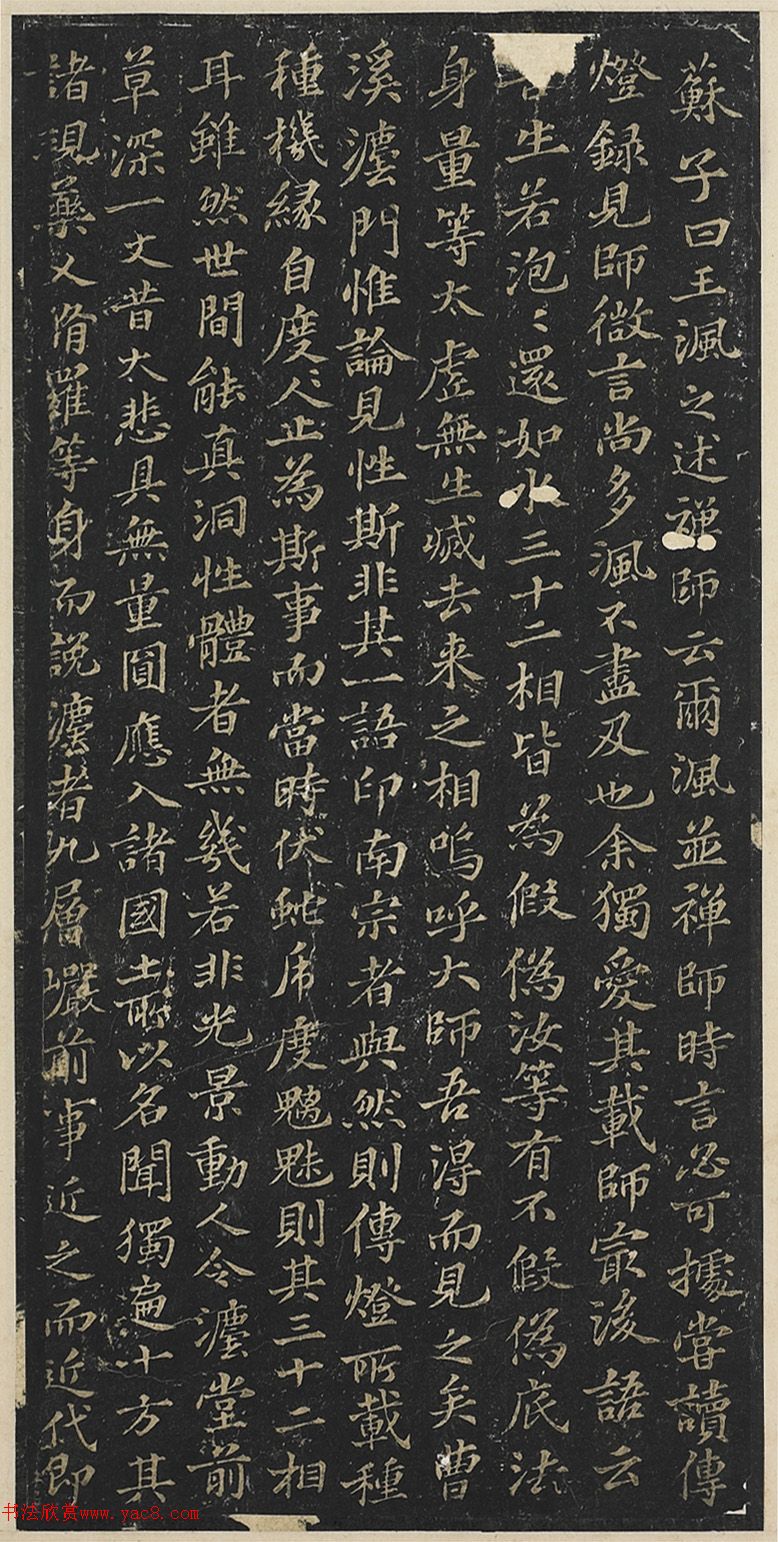 蘇子曰王渢之述禪師云爾渢並禅師時言必可據嘗讀傳
燈録見師微言尚多渢不盡及也余獨愛其載師㝡後語云
吾生若泡〻還如水三十二相皆為假偽汝等有不假偽底法
身量等太虗無生滅去来之相嗚呼大師吾得而見之矣曹
溪灋門惟論見性斯非其一語印南宗者與然則傳燈所載種
種機緣自度〻人止為斯事而當時伏虵帍度魑魅則其三十二相
耳雖然世間能真洞性體者無幾若非光景動人令灋堂前
草深一丈昔大悲具無量圓應入諸國土所以名聞獨遍十方其
諸現藥乂脩羅等身而說灋者九層巖前事近之而近代即
书法欣赏www.yac8.com